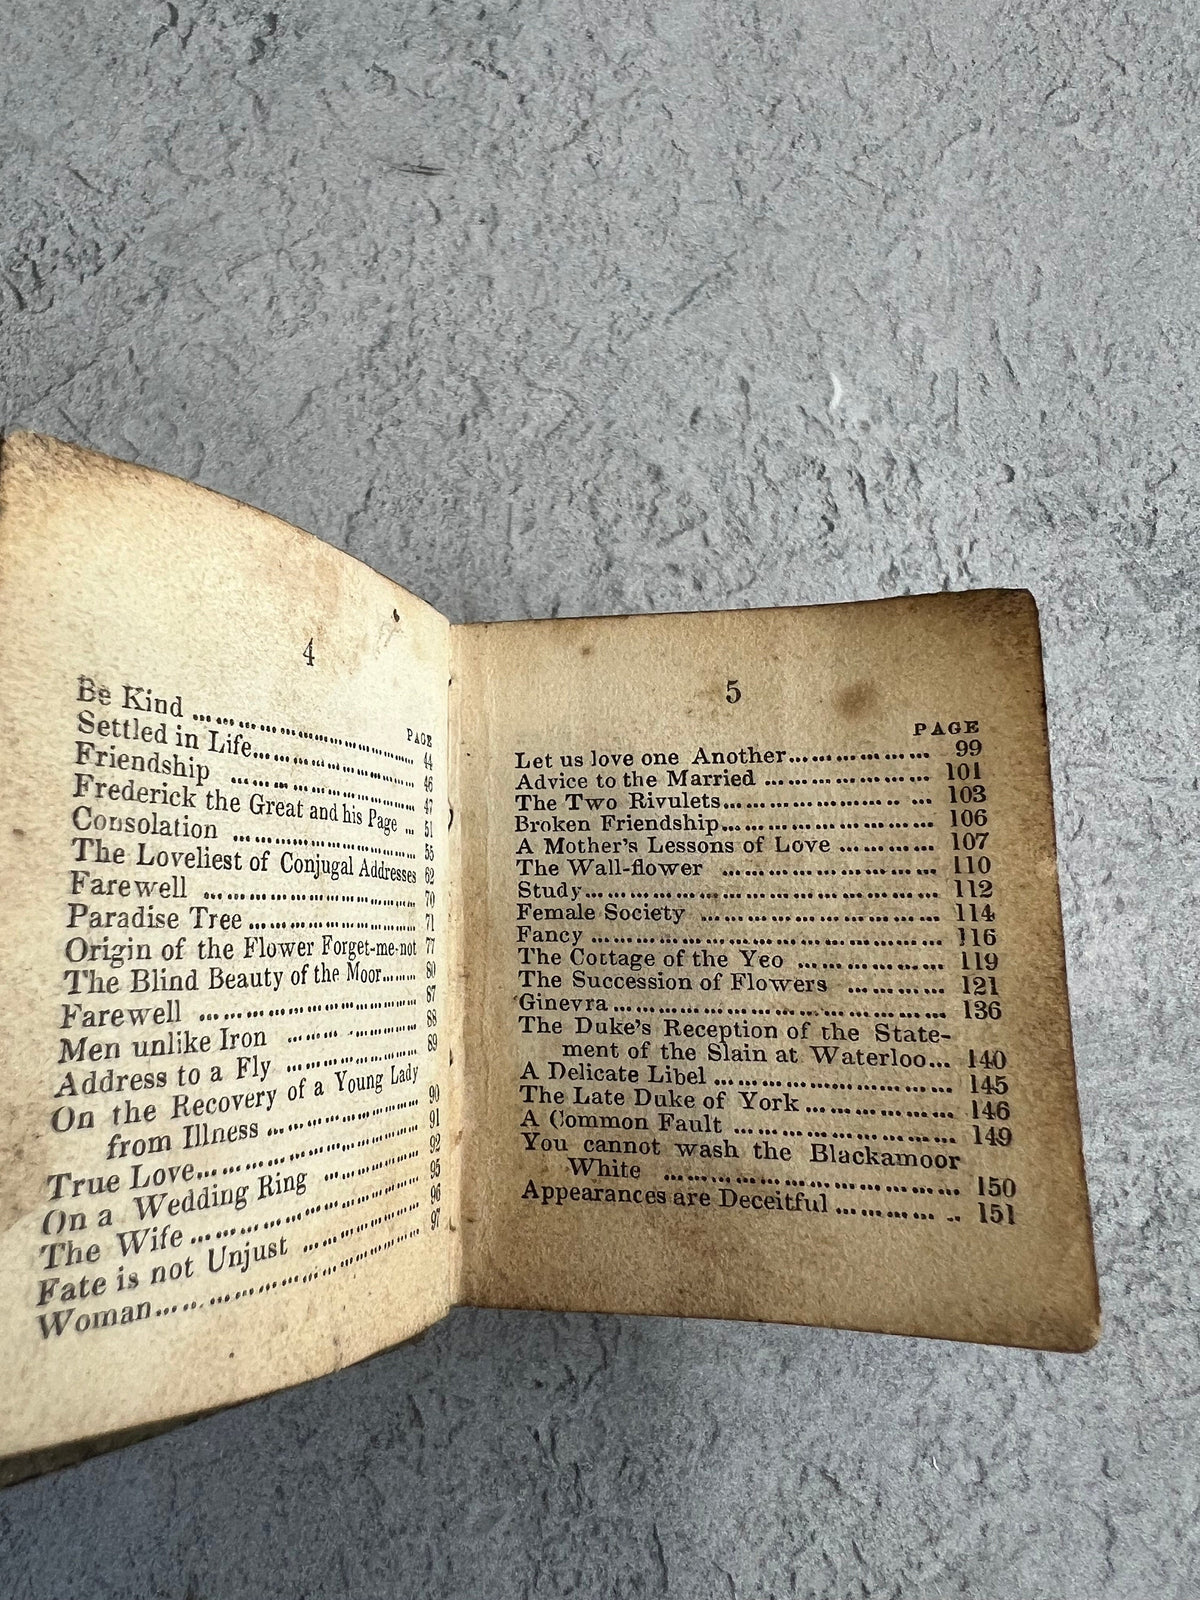 4
PAGE
Be Kind ........................ 44
Settled in Life.................. 46
Friendship ..................... 47
Frederick the Great and his Page ... 51
Consolation ..................... 55
The Loveliest of Conjugal Addresses 62
Farewell ........................ 70
Paradise Tree ..................... 71
Origin of the Flower Forget-me-not 77
The Blind Beauty of the Moor...... 80
Farewell ........................ 87
Men unlike Iron .................. 88
Address to a Fly .................. 89
On the Recovery of a Young Lady
from Illness ..................... 90
True Love........................ 91
On a Wedding Ring ............... 92
The Wife ........................ 95
Fate is not Unjust ............... 96
Woman........................... 97
5
PAGE
Let us love one Another.................. 99
Advice to the Married .................. 101
The Two Rivulets..................... .. ... 103
Broken Friendship........................ 106
A Mother's Lessons of Love ............ 107
The Wall-flower ........................ 110
Study.................................... 112
Female Society ........................ 114
Fancy .................................... 116
The Cottage of the Yeo ............... 119
The Succession of Flowers ............ 121
Ginevra................................. 136
The Duke's Reception of the State-
ment of the Slain at Waterloo... 140
A Delicate Libel ........................ 145
The Late Duke of York.................. 146
A Common Fault ..................... 149
You cannot wash the Blackamoor
White .............................. 150
Appearances are Deceitful ............ .. 151